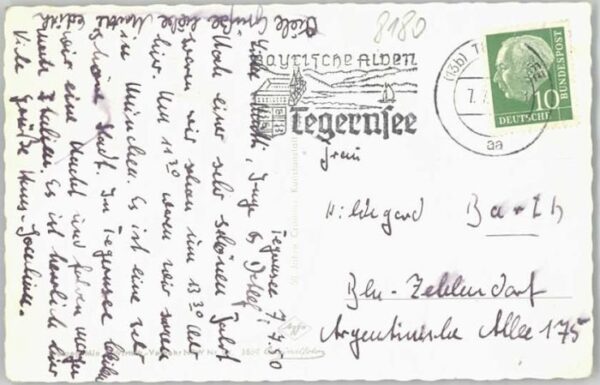 8180
Bayrische Alpen
Tegernsee
(13b) T
7.
aa
10
DEUTSCHE
BUNDESPOST
Frau
Hildegard Barth
Bln-Zehlendorf
Argentinische Allee 175
Tegernsee 7.7.60
Liebe Mutti, Inge & Detlef!
Nach einer sehr schönen Fahrt
waren wir schon um 13.30 Uhr
hier. Um 11.30 waren wir schon
in München. Es ist eine sehr
schöne Stadt. In Tegernsee bleiben
wir eine Nacht und fahren morgen
nach Italien. Es ist herrlich hier
Viele Grüße Hans-Joachim.
Viele Grüße